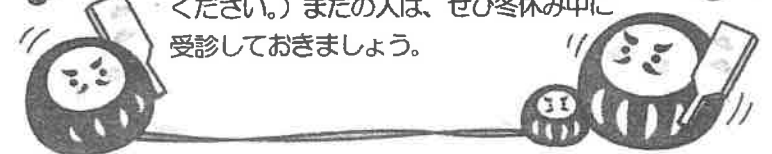 ください。）まだの人は、ぜひ冬休み中に
受診しておきましょう。